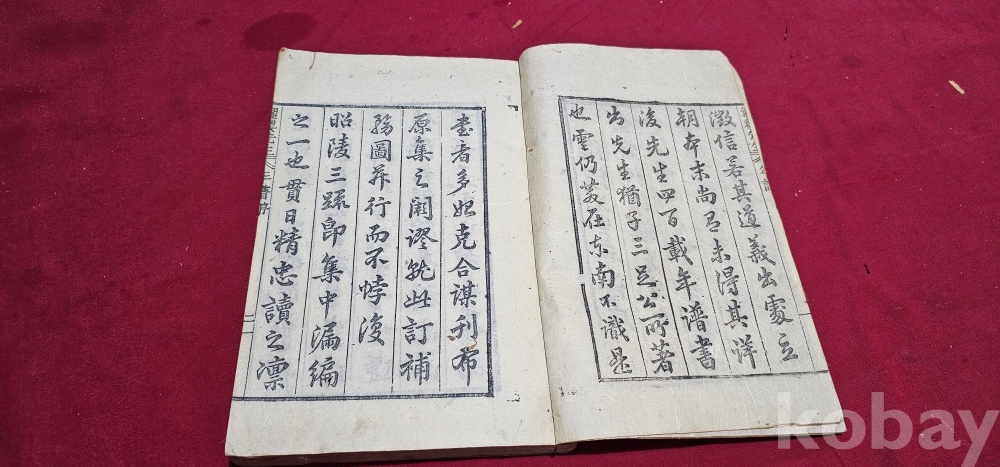 徵信若其道義出處立
朝本末尚有未得其詳
後先生四百載年譜書
出先生猶子三足公所著
也雲仍散在東南不識是
書者多始克合謀刊布
原集之闕謬就此訂補
務圖幷行而不悖復
昭陵三疏卽集中漏編
之一也貫日精忠讀之凜
譜序
二
kobay